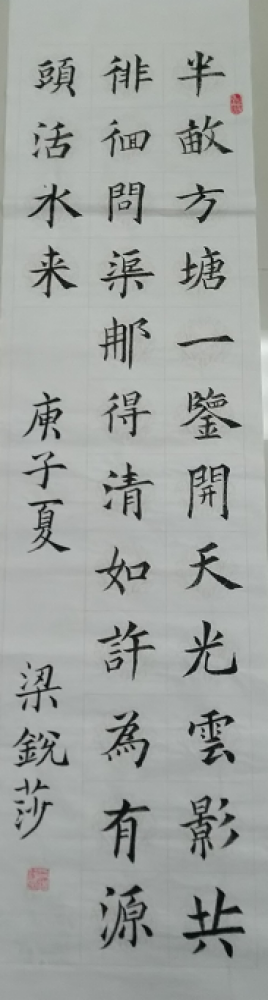 半畝方塘一鑒開天光雲影共
徘徊問渠那得清如許為有源
頭活水来
庚子夏
梁銳莎